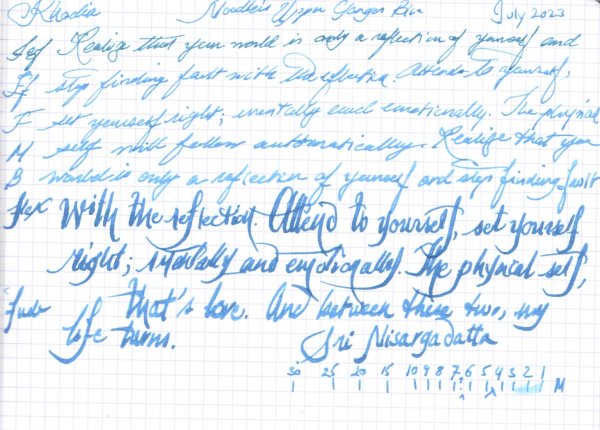 Rhodia Noodler's Upper Ganges Blue July 2023
Eef Realize that your world is only a reflection of yourself and
Ef stop finding fault with the reflection. Attend to yourself,
F set yourself right; mentally and emotionally. The physical
M self will follow automatically. Realize that you
B world is only a reflection of yourself and stop finding fault
flex With the reflection. Attend to yourself, set yourself
right; mentally and emotionally. The physical self,
Fude that's love. And between these two, my
life turns. Sri Nisargadatta
30 25 20 15 10 9 8 7 6 5 4 3 2 1 M